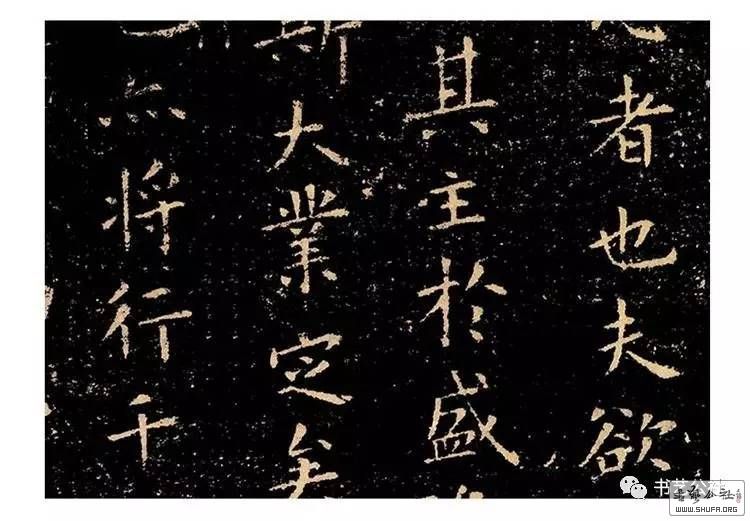 者也夫欲
其主於盛
斯大業定矣
亦将行千
书艺公社
書藝公社
WWW.SHUFA.ORG